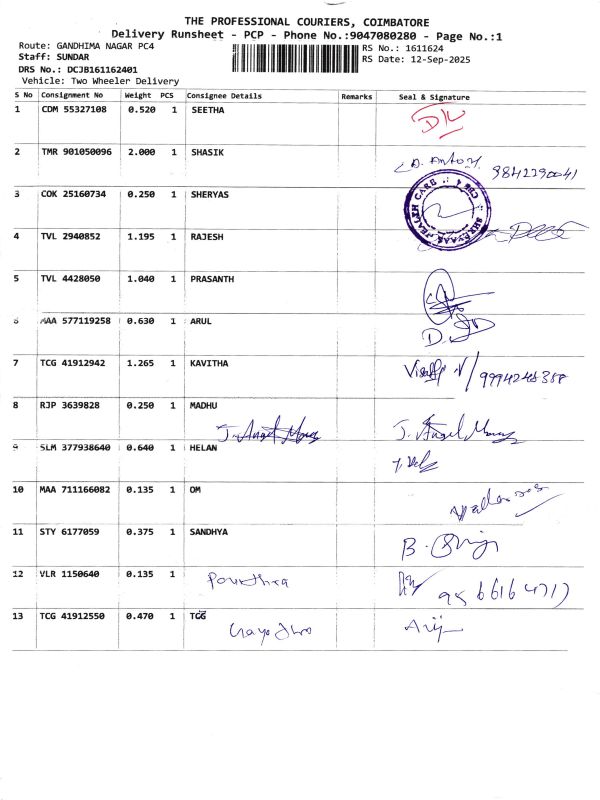 THE PROFESSIONAL COURIERS, COIMBATORE
Delivery Runsheet - PCP - Phone No.:9047080280 - Page No.:1
Route: GANDHIMA NAGAR PC4
Staff: SUNDAR
DRS No.: DCJB161162401
Vehicle: Two Wheeler Delivery
RS No.: 1611624
RS Date: 12-Sep-2025
S No Consignment No Weight PCS Consignee Details Remarks Seal & Signature
1 CDM 55327108 0.520 1 SEETHA
2 TMR 901050096 2.000 1 SHASIK
D. Antoy. 9842290041
3 COK 25160734 0.250 1 SHERYAS
HEALTH CARE
CBE 4
4 TVL 2940852 1.195 1 RAJESH
5 TVL 4428050 1.040 1 PRASANTH
6 MAA 577119258 0.630 1 ARUL
7 TCG 41912942 1.265 1 KAVITHA
8 RJP 3639828 0.250 1 MADHU
J. Angel Mercy J. Angel Mercy
9 SLM 377938640 0.640 1 HELAN
10 MAA 711166082 0.135 1 OM
11 STY 6177059 0.375 1 SANDHYA
12 VLR 1150640 0.135 1
13 TCG 41912550 0.470 1 TCG